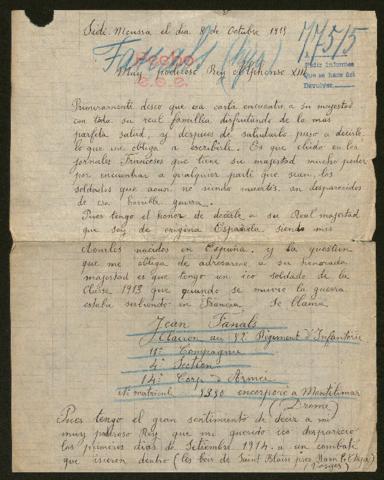 Sidi Moussa el dia 8 de Octubre 1915
Fanals (Jean)
77515
Hecho
Pedir informes
que se hace del
Devolver
Muy poderoso Rey Alphonse XIII
Primeramente deseo que esa carta encuentre a su majestad
con toda su real famillia disfrutando de la más
parfeta salud, y despues de saludarle paso a decirle
lo que me obliga a escribirle. Es que eleido en los
jornales Franceses que tiene su majestad mucho poder
por encontrar a qualquier parti que sean los
soldados que aoun no siendo muertos, an desparecidos
de esa horrible guerra.
Pues tengo el honor de decirle a su Real majestad
que soy de origina Española siendo mis
Abuelos nacidos en España. y la questien
que me obliga de adresarme a su honorada
majestad es que tengo un ico soldado de la
Classe 1913 que quando se muvio la guerra
estaba serbiendo en Francia Se llama.
Jean Fanals
Régiment d'Infanterie
11e Compagnie
4e Section
14e Corps d'Armée
Ni matricule 1350 encorporé a Montelimar
(Drome)
Pues tengo el gran sentimento de decir a mi
muy poderoso Rey que mi querido ico disparecio
los primeros dias de Setiembre 1914 a un combate
que isieron dentro (les bois de Saint Blain pres
(Vosges)